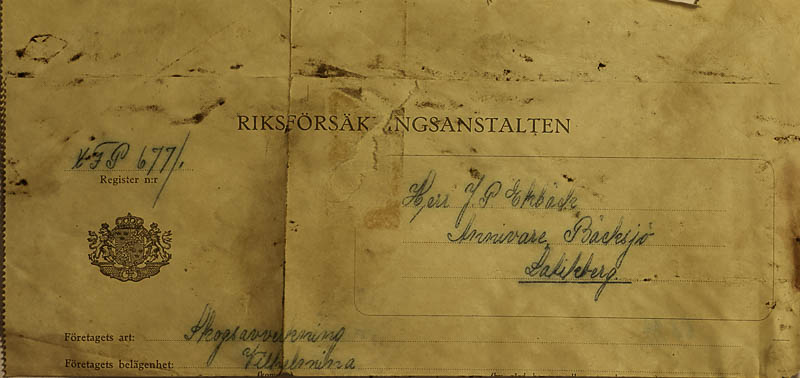 RIKSFÖRSÄK NGSANSTALTEN
XFP 677/1.
Register n:r
Herr J. P. Ekbäck
Annivare, Bäcksjö
Latikberg.
Företagets art: Skogsavverkning
Företagets belägenhet: Vilhelmina